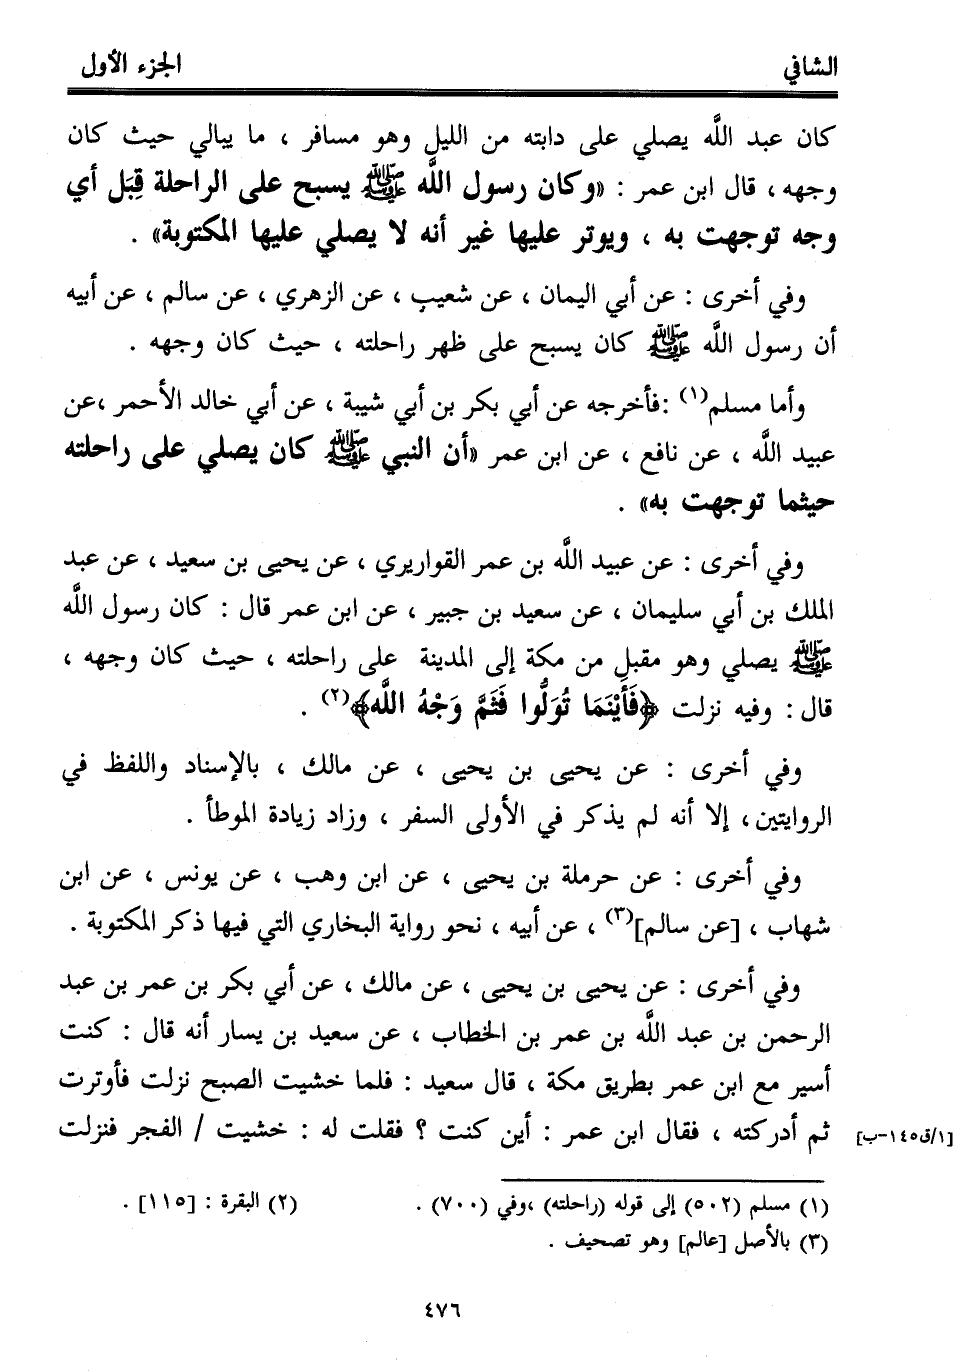 الشافي الجزء الأول
كان عبد اللَّه يصلي على دابته من الليل وهو مسافر ، ما يبالي حيث كان
وجهه ، قال ابن عمر : «وكان رسول اللَّه ﷺ يسبح على الراحلة قِبَل أي
وجه توجهت به ، ويوتر عليها غير أنه لا يصلي عليها المكتوبة» .
وفي أخرى : عن أبي اليمان ، عن شعيبٍ ، عن الزهري ، عن سالم ، عن أبيه
أن رسول اللَّه ﷺ كان يسبح على ظهر راحلته ، حيث كان وجهه .
وأما مسلم(١) :فأخرجه عن أبي بكر بن أبي شيبة ، عن أبي خالد الأحمر ،عن
عبيد اللَّه ، عن نافع ، عن ابن عمر «أن النبي ﷺ كان يصلي على راحلته
حيثما توجهت به» .
وفي أخرى : عن عبيد اللَّه بن عمر القواريري ، عن يحيى بن سعيد ، عن عبد
الملك بن أبي سليمان ، عن سعيد بن جبير ، عن ابن عمر قال : كان رسول اللَّه
ﷺ يصلي وهو مقبل من مكة إلى المدينة على راحلته ، حيث كان وجهه ،
قال : وفيه نزلت ﴿فَأَيْنَمَا تُوَلُّوا فَثَمَّ وَجْهُ اللَّه﴾(٢) .
وفي أخرى : عن يحيى بن يحيى ، عن مالك ، بالإسناد واللفظ في
الروايتين، إلا أنه لم يذكر في الأولى السفر ، وزاد زيادة الموطأ .
وفي أخرى : عن حرملة بن يحيى ، عن ابن وهب ، عن يونس ، عن ابن
شهاب ، [عن سالم](٣) ، عن أبيه ، نحو رواية البخاري التي فيها ذكر المكتوبة .
وفي أخرى : عن يحيى بن يحيى ، عن مالك ، عن أبي بكر بن عمر بن عبد
الرحمن بن عبد اللَّه بن عمر بن الخطاب ، عن سعيد بن يسار أنه قال : كنت
أسير مع ابن عمر بطريق مكة ، قال سعيد : فلما خشيت الصبح نزلت فأوترت
ثم أدركته ، فقال ابن عمر : أين كنت ؟ فقلت له : خشيت / الفجر فنزلت [١/ق١٤٥-ب]
(١) مسلم (٥٠٢) إلى قوله (راحلته) ،وفي (٧٠٠) . (٢) البقرة : [١١٥] .
(٣) بالأصل [عالم] وهو تصحيف .
٤٧٦